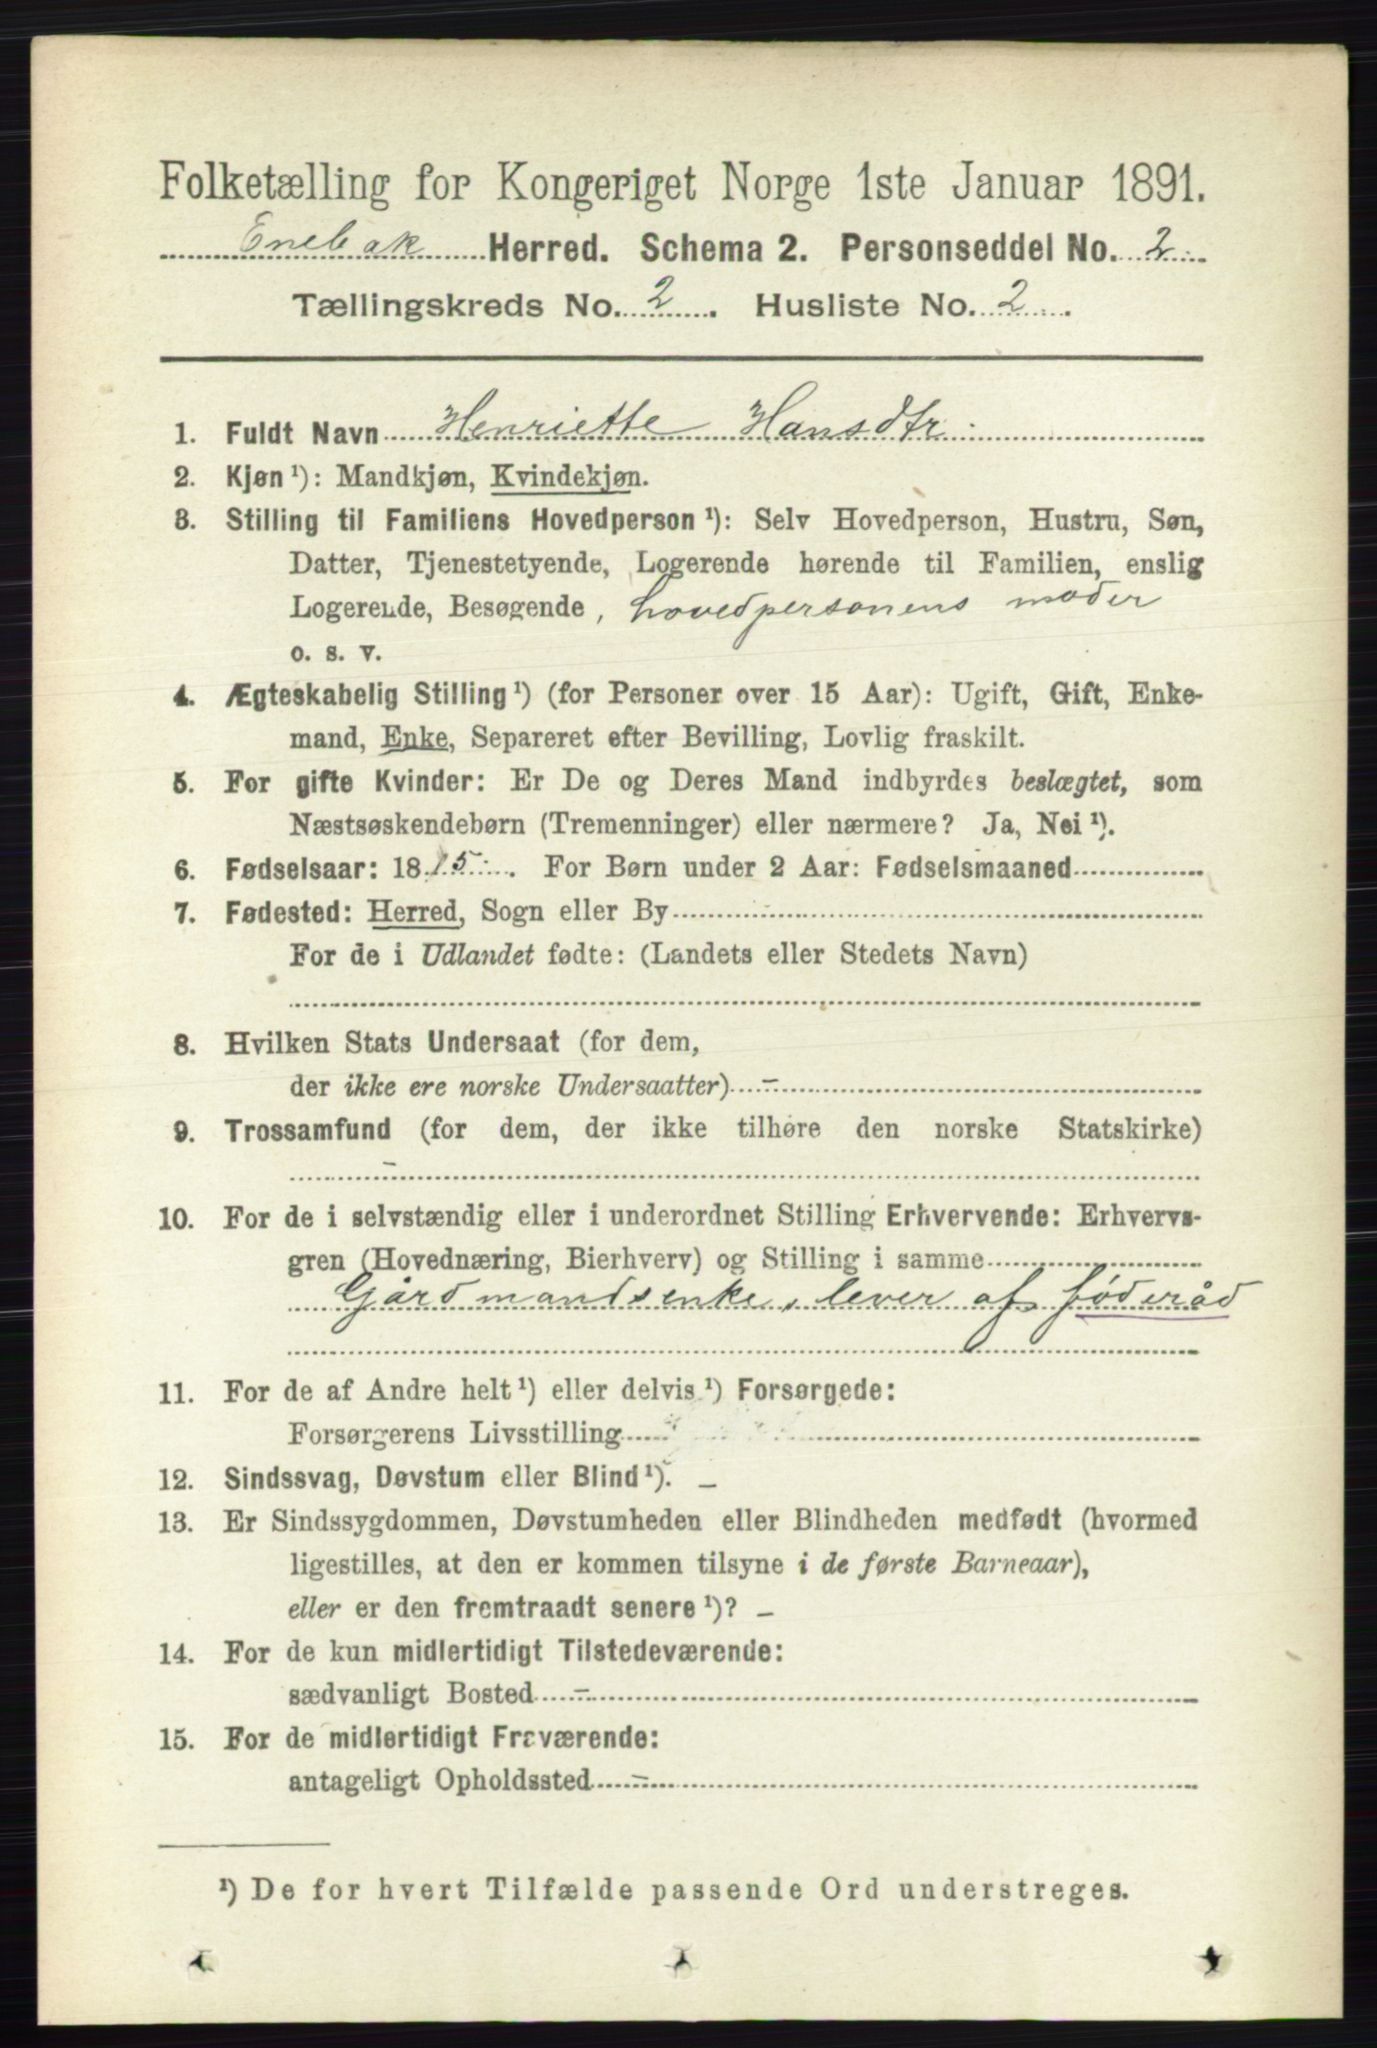 Folketælling for Kongeriget Norge 1ste Januar 1891.
Enebak Herred. Schema 2. Personseddel No. 2
Tællingskreds No. 2. Husliste No. 2.
1. Fuldt Navn Henriette Hansdtr.
2. Kjøn ¹): Mandkjøn, Kvindekjøn.
3. Stilling til Familiens Hovedperson ¹): Selv Hovedperson, Hustru, Søn,
Datter, Tjenestetyende, Logerende hørende til Familien, enslig
Logerende, Besøgende, hovedpersonens moder
o. s. v.
4. Ægteskabelig Stilling ¹) (for Personer over 15 Aar): Ugift, Gift, Enke-
mand, Enke, Separeret efter Bevilling, Lovlig fraskilt.
5. For gifte Kvinder: Er De og Deres Mand indbyrdes beslægtet, som
Næstsøskendebørn (Tremenninger) eller nærmere? Ja, Nei ¹).
6. Fødselsaar: 1815. For Børn under 2 Aar: Fødselsmaaned
7. Fødested: Herred, Sogn eller By –
For de i Udlandet fødte: (Landets eller Stedets Navn)
8. Hvilken Stats Undersaat (for dem,
der ikke ere norske Undersaatter) –
9. Trossamfund (for dem, der ikke tilhøre den norske Statskirke)
–
10. For de i selvstændig eller i underordnet Stilling Erhvervende: Erhvervs-
gren (Hovednæring, Bierhverv) og Stilling i samme
Gårdmandsenke, lever af føderåd
11. For de af Andre helt ¹) eller delvis ¹) Forsørgede:
Forsørgerens Livsstilling
12. Sindssvag, Døvstum eller Blind ¹). –
13. Er Sindssygdommen, Døvstumheden eller Blindheden medfødt (hvormed
ligestilles, at den er kommen tilsyne i de første Barneaar),
eller er den fremtraadt senere ¹)? –
14. For de kun midlertidigt Tilstedeværende:
sædvanligt Bosted –
15. For de midlertidigt Fraværende:
antageligt Opholdssted –
¹) De for hvert Tilfælde passende Ord understreges.